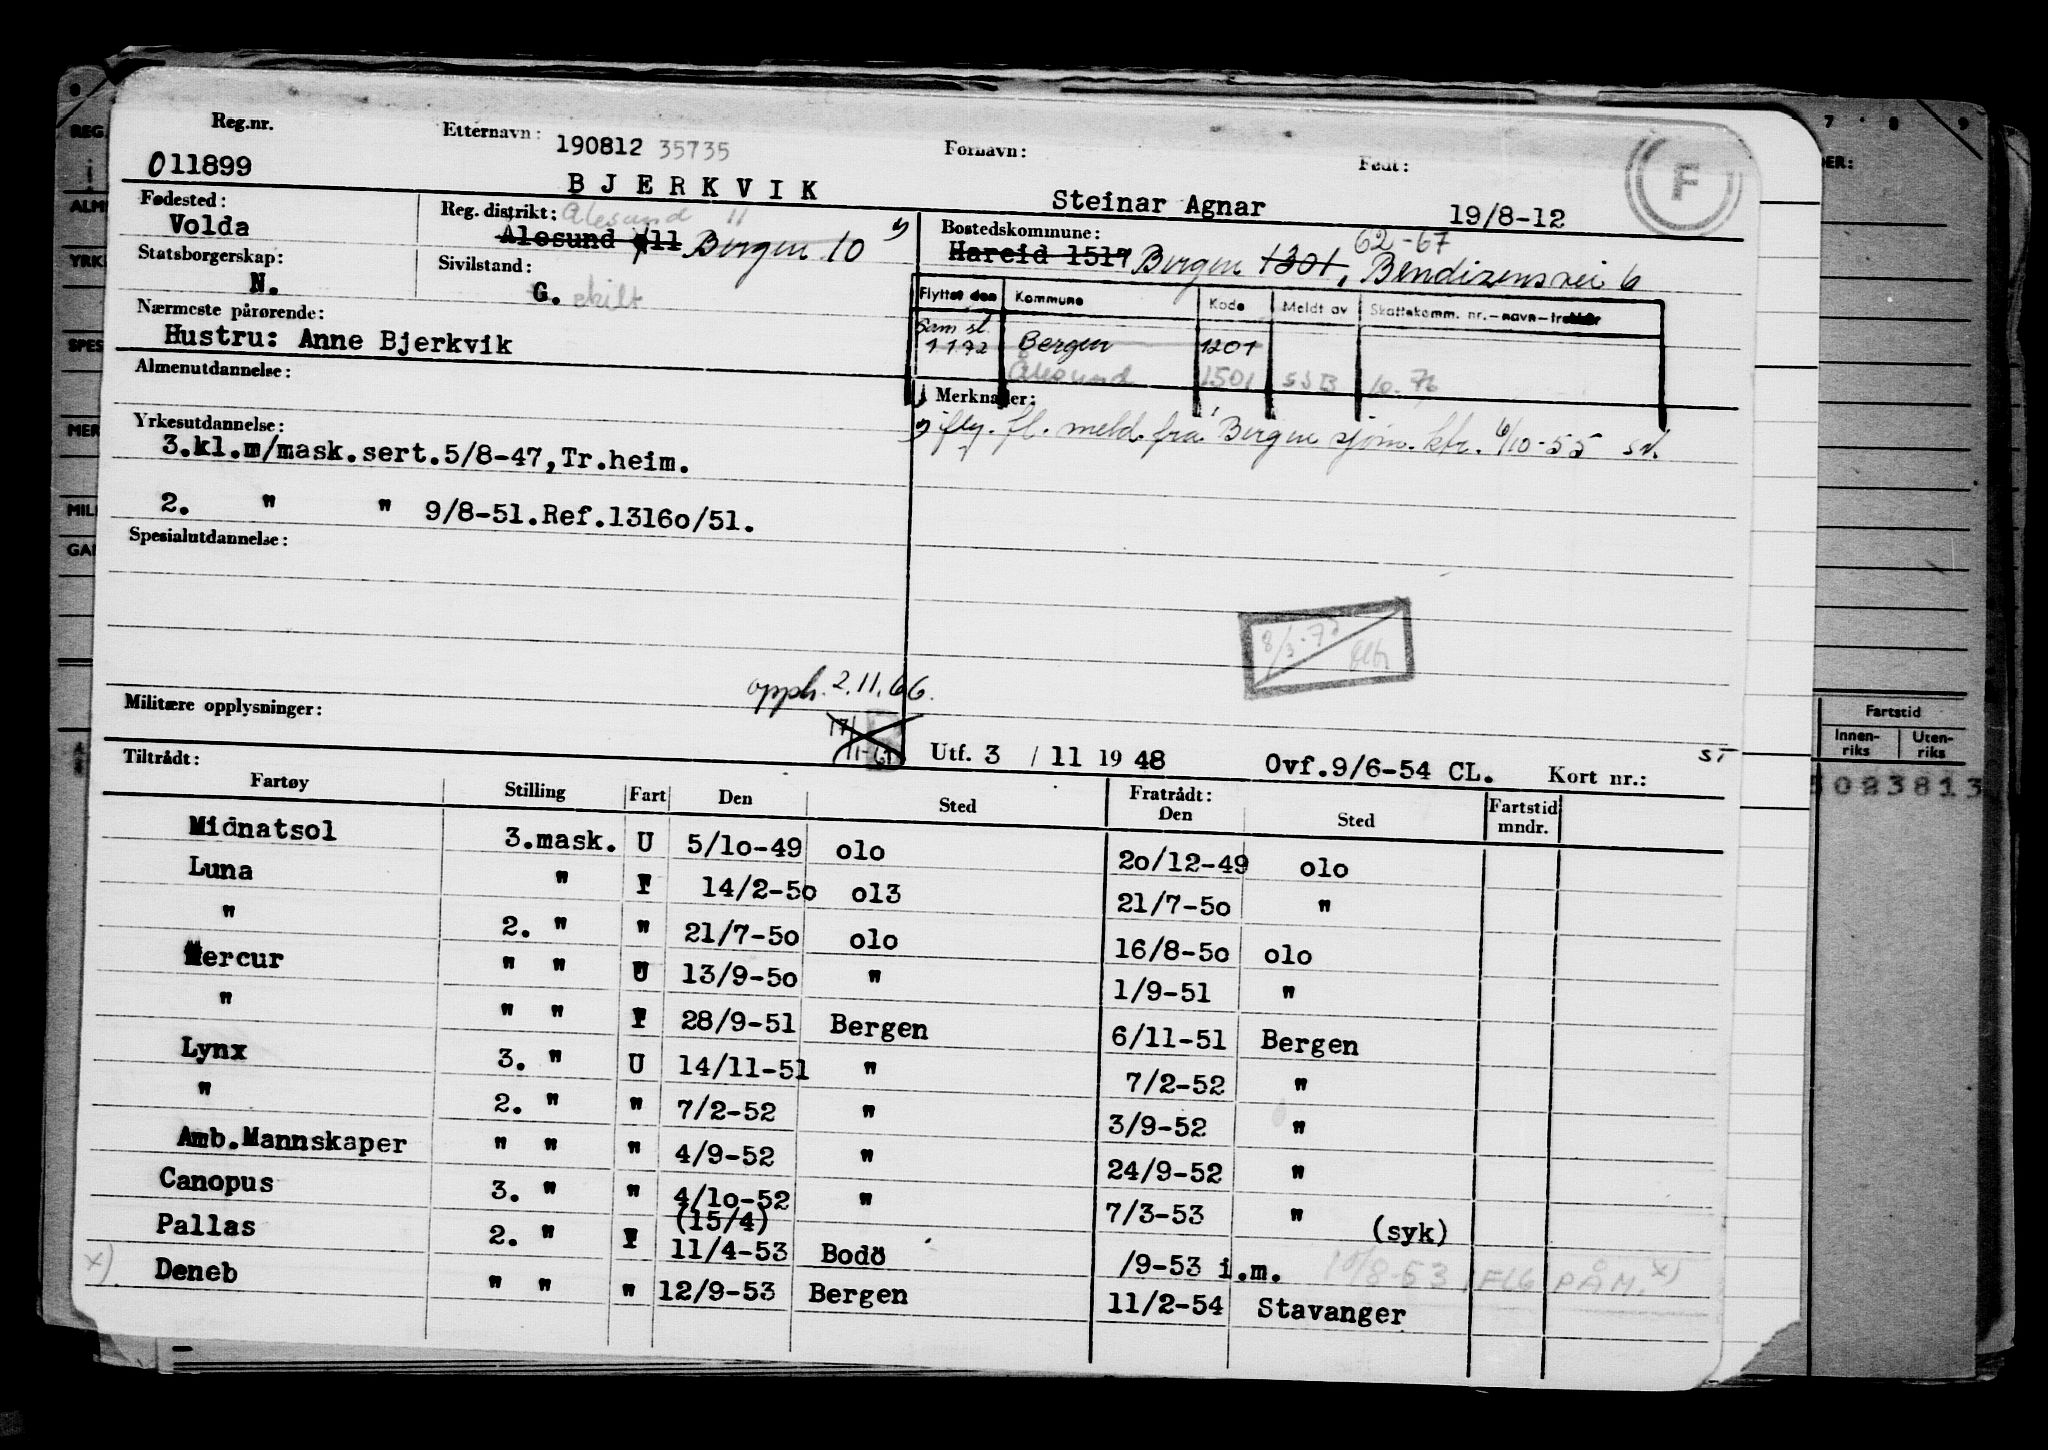 Reg.nr. Etternavn: 190812 35735 Fornavn: Født:
011899 BJERKVIK Steinar Agnar 19/8-12 F
Fødested: Volda
Reg. distrikt: Ålesund 11
Ålesund 11 Bergen 10
Bostedskommune: 62-67
Hareid 1517 Bergen 1301, Bendixensvei 6
Statsborgerskap: N.
Sivilstand: G. skilt
Flyttet den Kommune Kode Meldt av Skattekomm. nr.—navn—trekkr
Sam st. 1 1 72 Bergen 1201
Ålesund 1501 SSB 10.76
Nærmeste pårørende:
Hustru: Anne Bjerkvik
Almenutdannelse:
Merknader:
iflg. fl. meld. fra Bergen sjøm. ktr. 6/10-55
Yrkesutdannelse:
3.kl.m/mask.sert.5/8-47,Tr.heim.
2. " " 9/8-51.Ref.1316o/51.
Spesialutdannelse:
8/3-72
opph. 2.11.66.
Militære opplysninger:
17/11-67
Utf. 3 / 11 19 48 Ovf.9/6-54 CL. Kort nr.: ST
Tiltrådt: Fratrådt:
Fartøy Stilling Fart Den Sted Den Sted Fartstid mndr.
Midnatsol 3.mask. U 5/1o-49 olo 2o/12-49 olo
Luna " F 14/2-5o ol3 21/7-5o "
" 2. " " 21/7-5o olo 16/8-5o olo
Mercur " " U 13/9-5o " 1/9-51 "
" " " F 28/9-51 Bergen 6/11-51 Bergen
Lynx 3. " U 14/11-51 " 7/2-52 "
" 2. " " 7/2-52 " 3/9-52 "
Amb.Mannskaper " " " 4/9-52 " 24/9-52 "
Canopus 3. " " 4/1o-52 " 7/3-53 " (syk)
(15/4)
Pallas 2. " F 11/4-53 Bodö /9-53 i.m. 10/8-53 IFLG PÅM. x)
x) Deneb " " " 12/9-53 Bergen 11/2-54 Stavanger
REG.
YRK
SPES
MER
MIL
GA
7 8 9
Fartstid
Innen-
riks
Uten-
riks